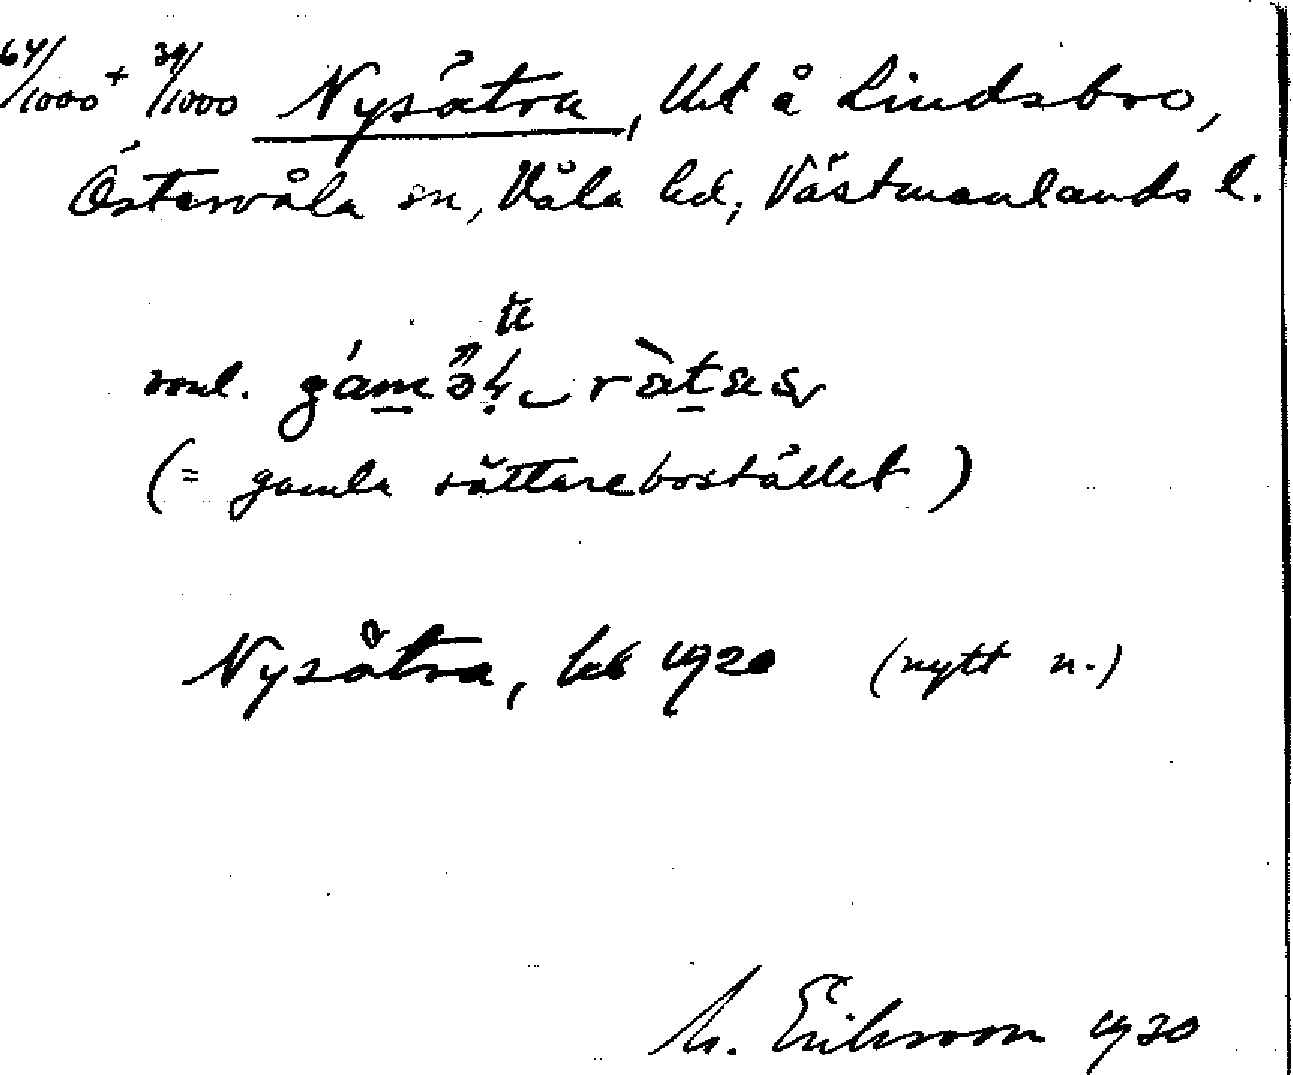 64/1000 + 34/1000 Nysätra, Utt å Lindsbro,
Östervåla sn, Våla hd, Västmanlands l.
(= gamla rättarebostället)
Nysätra, kb 1920 (nytt n.)
M. Eriksson 1930